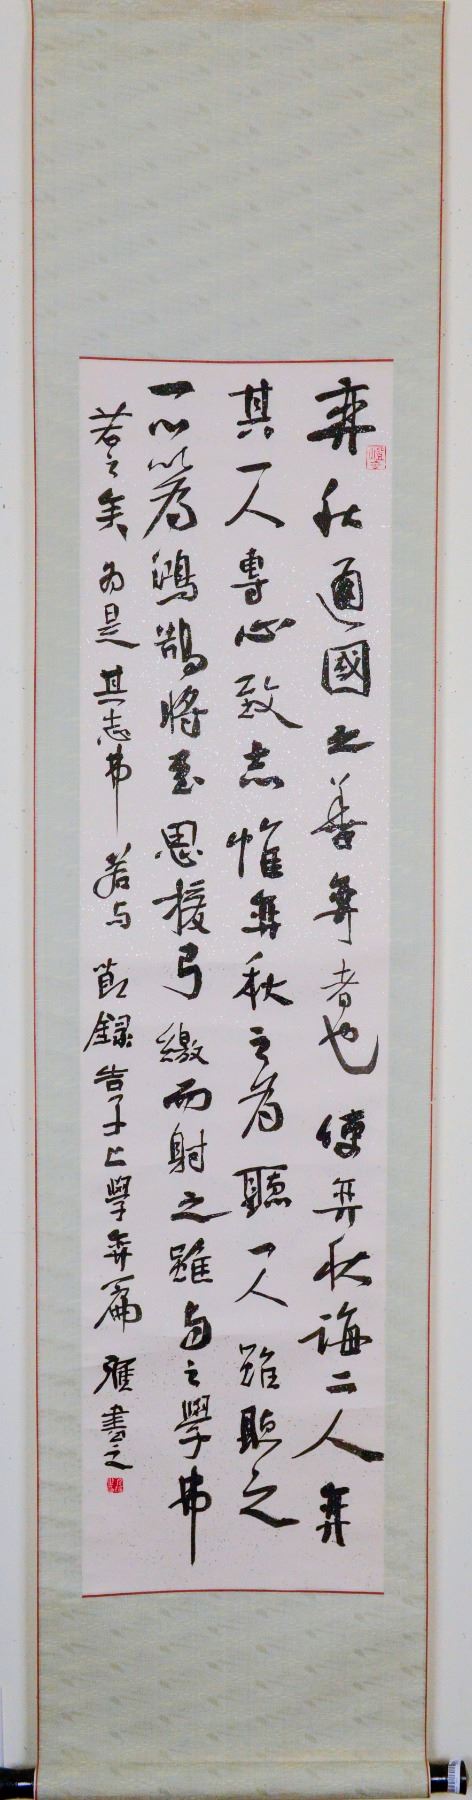 弈秋通國之善弈者也使弈秋誨二人弈
其一人專心致志惟弈秋之為聽一人雖聽之
一心以為鴻鵠將至思援弓繳而射之雖与之學弗
若之矣為是其志弗若与節錄告子上學弈篇書之